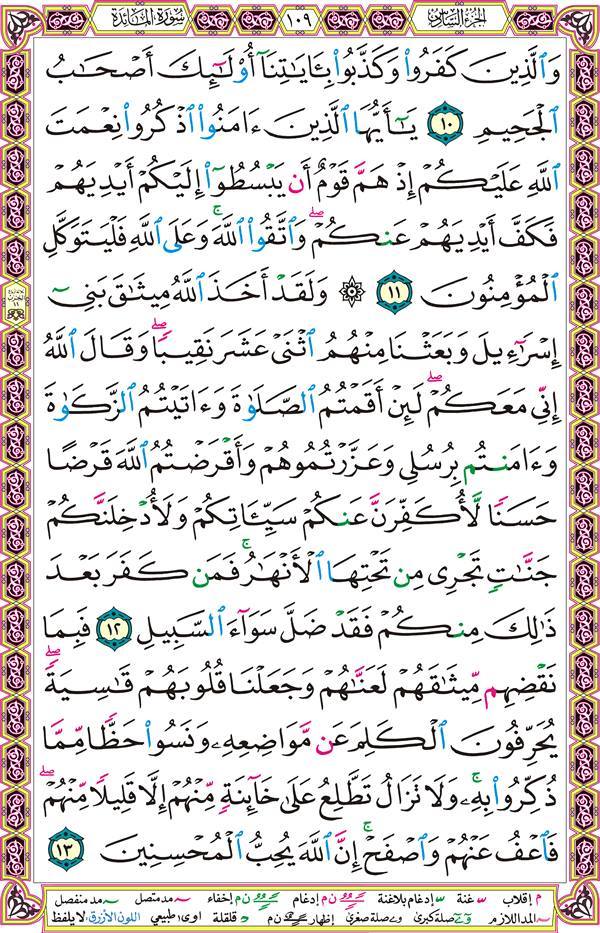 الجزء السادس ١٠٩ سورة المائدة
وَٱلَّذِينَ كَفَرُواْ وَكَذَّبُواْ بِـَٔايَٰتِنَآ أُوْلَٰٓئِكَ أَصْحَٰبُ
ٱلْجَحِيمِ ١٠ يَٰٓأَيُّهَا ٱلَّذِينَ ءَامَنُواْ ٱذْكُرُواْ نِعْمَتَ
ٱللَّهِ عَلَيْكُمْ إِذْ هَمَّ قَوْمٌ أَن يَبْسُطُوٓاْ إِلَيْكُمْ أَيْدِيَهُمْ
فَكَفَّ أَيْدِيَهُمْ عَنكُمْ ۖ وَٱتَّقُواْ ٱللَّهَ ۚ وَعَلَى ٱللَّهِ فَلْيَتَوَكَّلِ
ٱلْمُؤْمِنُونَ ١١ ۞ وَلَقَدْ أَخَذَ ٱللَّهُ مِيثَٰقَ بَنِىٓ
إِسْرَٰٓءِيلَ وَبَعَثْنَا مِنْهُمُ ٱثْنَىْ عَشَرَ نَقِيبًا ۖ وَقَالَ ٱللَّهُ
إِنِّى مَعَكُمْ ۖ لَئِنْ أَقَمْتُمُ ٱلصَّلَوٰةَ وَءَاتَيْتُمُ ٱلزَّكَوٰةَ
وَءَامَنتُم بِرُسُلِى وَعَزَّرْتُمُوهُمْ وَأَقْرَضْتُمُ ٱللَّهَ قَرْضًا
حَسَنًا لَّأُكَفِّرَنَّ عَنكُمْ سَيِّـَٔاتِكُمْ وَلَأُدْخِلَنَّكُمْ
جَنَّٰتٍ تَجْرِى مِن تَحْتِهَا ٱلْأَنْهَٰرُ ۚ فَمَن كَفَرَ بَعْدَ
ذَٰلِكَ مِنكُمْ فَقَدْ ضَلَّ سَوَآءَ ٱلسَّبِيلِ ١٢ فَبِمَا
نَقْضِهِم مِّيثَٰقَهُمْ لَعَنَّٰهُمْ وَجَعَلْنَا قُلُوبَهُمْ قَٰسِيَةً ۖ
يُحَرِّفُونَ ٱلْكَلِمَ عَن مَّوَاضِعِهِۦ وَنَسُواْ حَظًّا مِّمَّا
ذُكِّرُواْ بِهِۦ ۚ وَلَا تَزَالُ تَطَّلِعُ عَلَىٰ خَآئِنَةٍ مِّنْهُمْ إِلَّا قَلِيلًا مِّنْهُمْ ۖ
فَٱعْفُ عَنْهُمْ وَٱصْفَحْ ۚ إِنَّ ٱللَّهَ يُحِبُّ ٱلْمُحْسِنِينَ ١٣
م إقلاب غنة إدغام بلاغنة ن م إدغام ن م إخفاء مد متصل مد منفصل
المد اللازم صلة كبرى صلة صغرى إظهار ن م قلقلة اوى: طبيعي اللون الأزرق: لا يلفظ